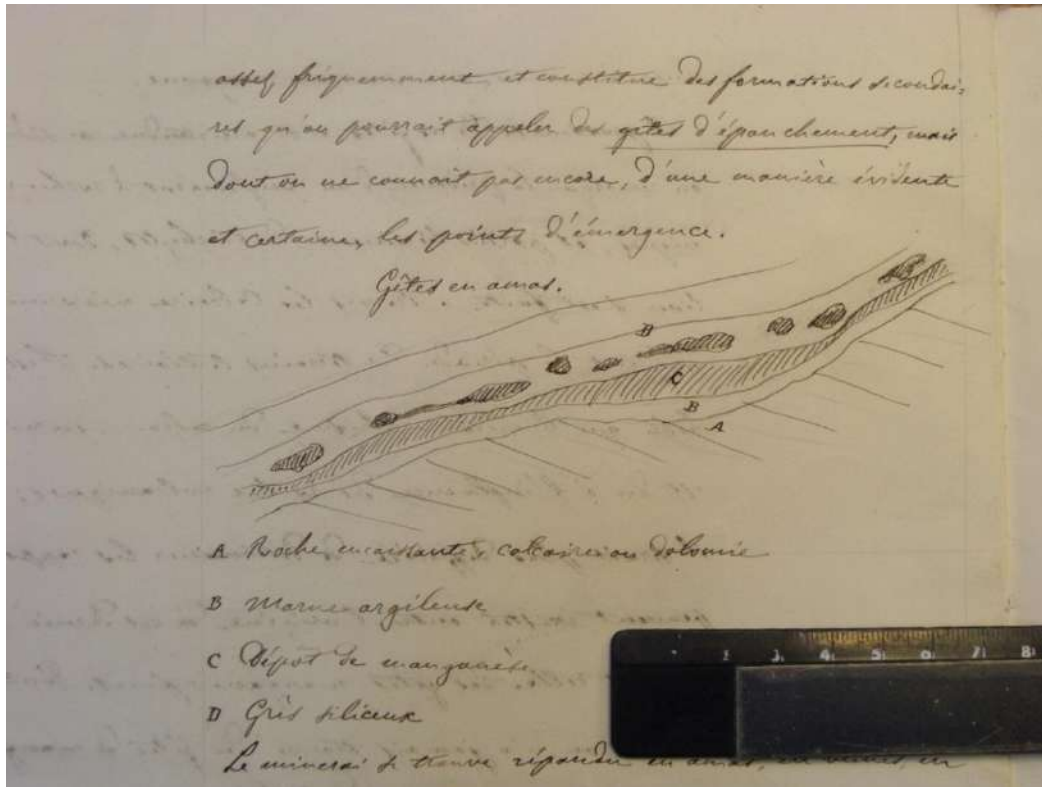 assez fréquemment et constitue des formations secondai-
res qu'on pourrait appeler des gîtes d'épanchement, mais
dont on ne connait pas encore, d'une manière évidente
et certaine, les points d'émergence.
Gîtes en amas.
B
C
B
A
A Roche encaissante, calcaire ou dolomie
B Marne argileuse
C Dépôt de manganèse
D Grès siliceux
Le minerai se trouve répandu en amas, en veines, en
1 3 4 5 6 7 8